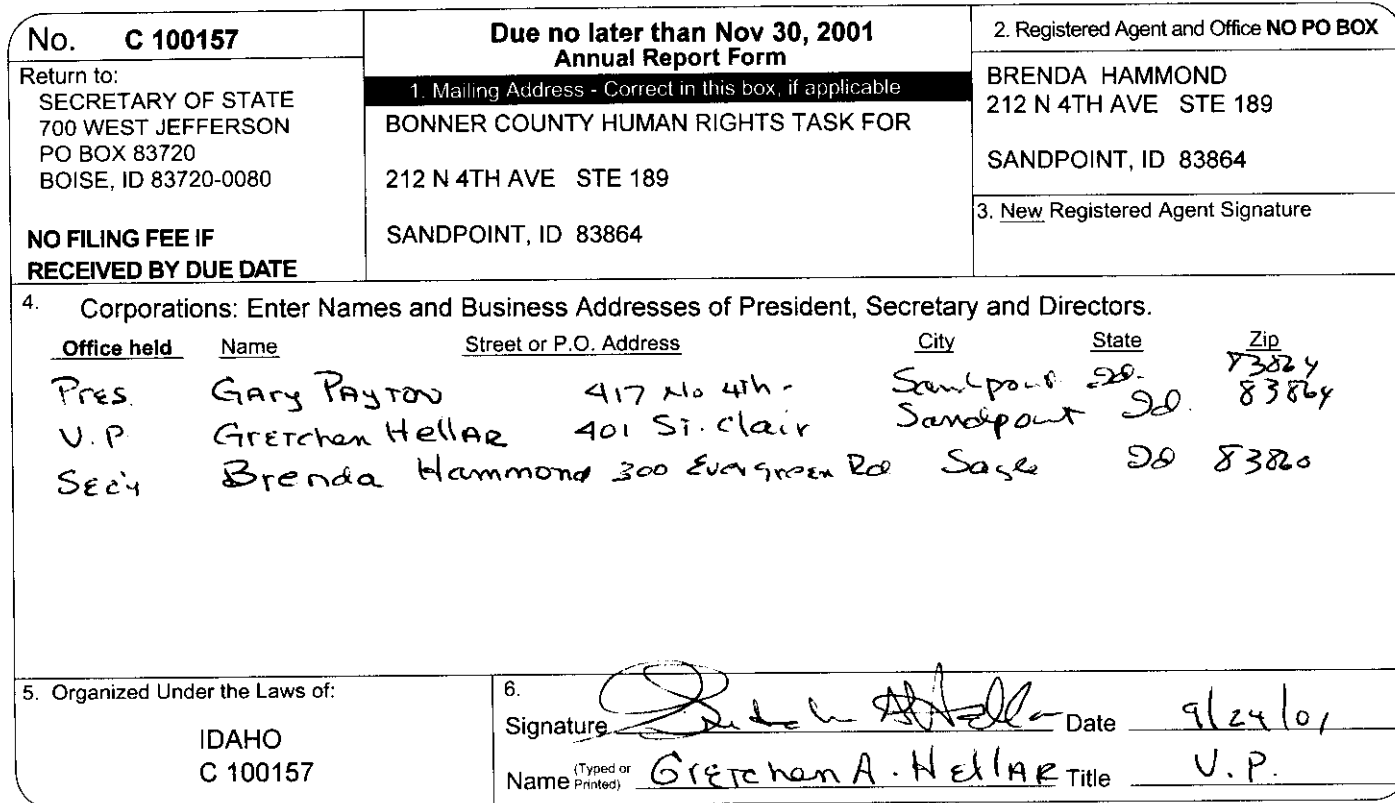 No. C 100157
Return to:
SECRETARY OF STATE
700 WEST JEFFERSON
PO BOX 83720
BOISE, ID 83720-0080
NO FILING FEE IF
RECEIVED BY DUE DATE
Due no later than Nov 30, 2001
Annual Report Form
1. Mailing Address - Correct in this box, if applicable
BONNER COUNTY HUMAN RIGHTS TASK FOR
212 N 4TH AVE STE 189
SANDPOINT, ID 83864
2. Registered Agent and Office NO PO BOX
BRENDA HAMMOND
212 N 4TH AVE STE 189
SANDPOINT, ID 83864
3. New Registered Agent Signature
4. Corporations: Enter Names and Business Addresses of President, Secretary and Directors.
Office held Name Street or P.O. Address City State Zip
Pres. Gary Payton 417 No 4th - Sandpoint Id. 83864
V.P. Gretchen Hellar 401 St. Clair Sandpoint Id. 83864
Sec'y Brenda Hammond 300 Evergreen Rd Sagle Id 83860
5. Organized Under the Laws of:
IDAHO
C 100157
6.
Signature Gretchen A Hellar Date 9/24/01
Name (Typed or Printed) Gretchen A. Hellar Title V.P.